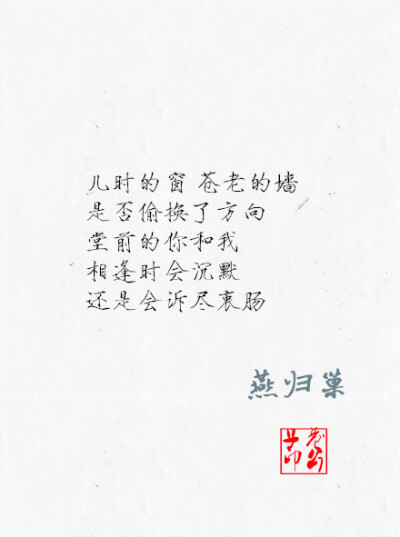 儿时的窗 苍老的墙
是否偷换了方向
堂前的你和我
相逢时会沉默
还是会诉尽衷肠
燕归巢